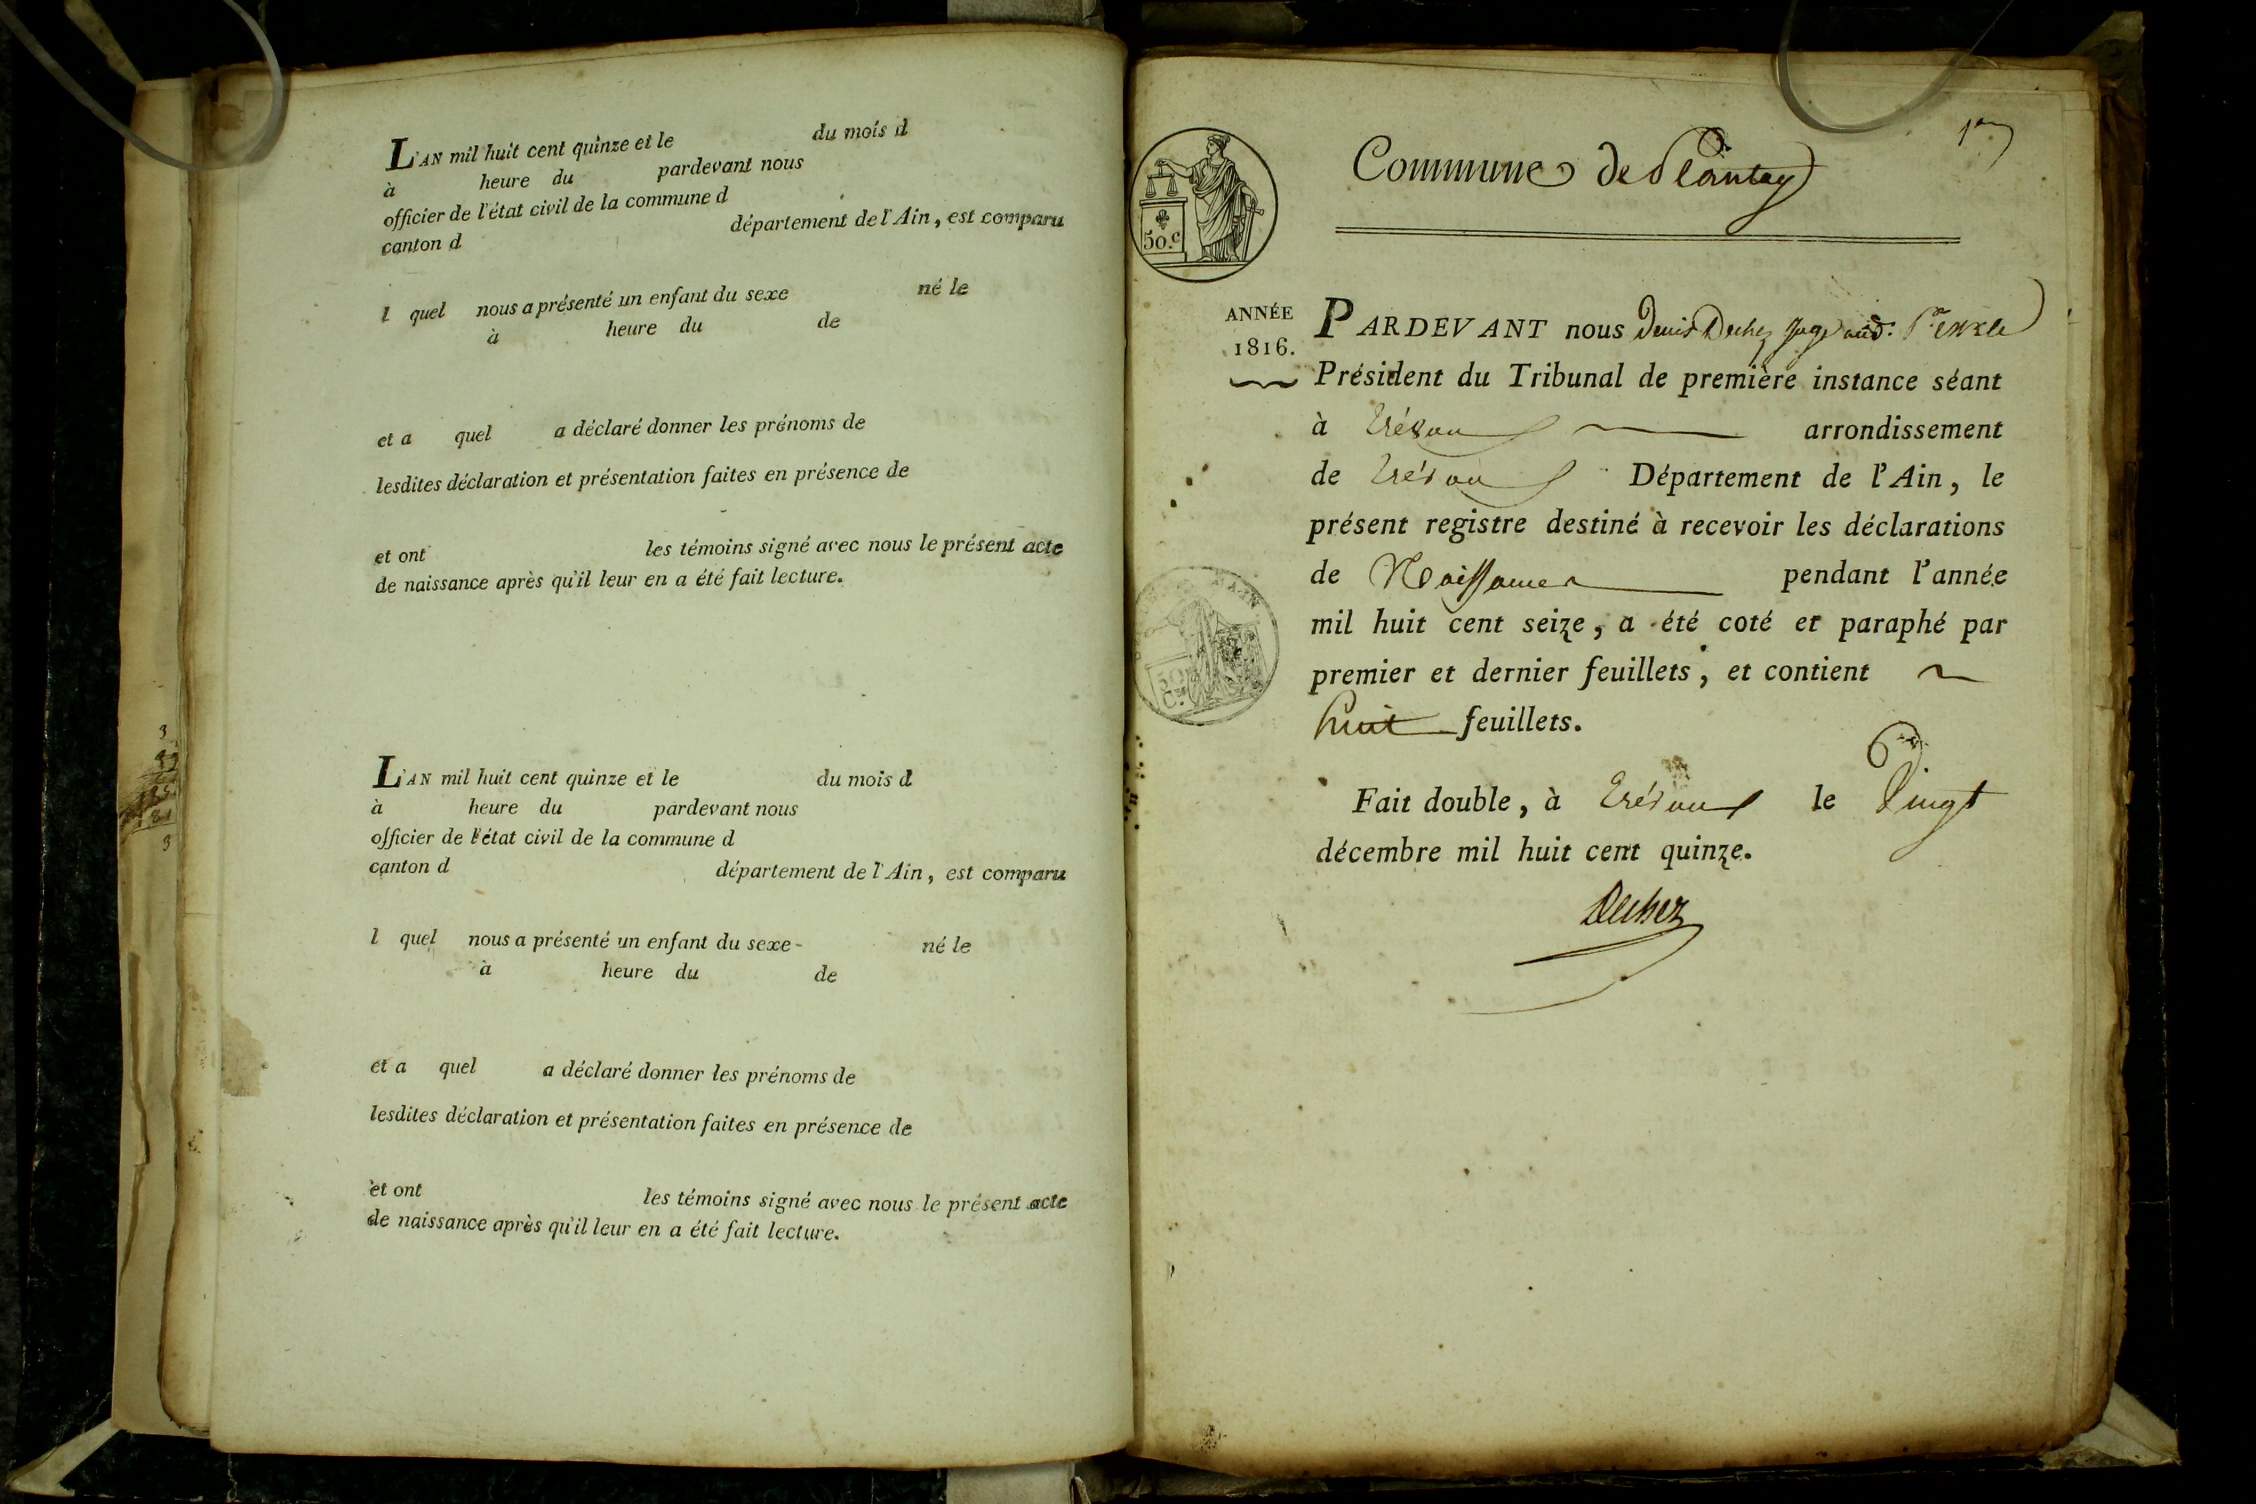 L'AN mil huit cent quinze et le du mois d
à heure du pardevant nous
officier de l'état civil de la commune d
canton d département de l'Ain, est comparu
l quel nous a présenté un enfant du sexe né le
à heure du de
et a quel a déclaré donner les prénoms de
lesdites déclaration et présentation faites en présence de
et ont les témoins signé avec nous le présent acte
de naissance après qu'il leur en a été fait lecture.
L'AN mil huit cent quinze et le du mois d
à heure du pardevant nous
officier de l'état civil de la commune d
canton d département de l'Ain, est comparu
l quel nous a présenté un enfant du sexe né le
à heure du de
et a quel a déclaré donner les prénoms de
lesdites déclaration et présentation faites en présence de
et ont les témoins signé avec nous le présent acte
de naissance après qu'il leur en a été fait lecture.
1er
Commune de Plantay
50.c
ANNÉE
1816.
PARDEVANT nous Denis Dechez Juge aud.
Président du Tribunal de première instance séant
à Trévoux arrondissement
de Trévoux Département de l'Ain, le
présent registre destiné à recevoir les déclarations
de Naissances pendant l'année
mil huit cent seize, a été coté et paraphé par
premier et dernier feuillets, et contient
huit feuillets.
Fait double, à Trévoux le Vingt
décembre mil huit cent quinze.
Dechez